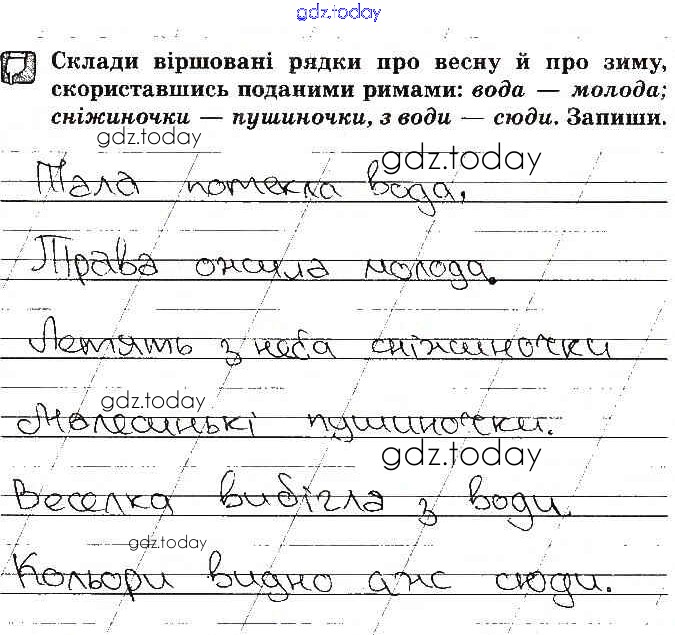 gdz.today
Склади віршовані рядки про весну й про зиму,
скориставшись поданими римами: вода — молода;
сніжиночки — пушиночки, з води — сюди. Запиши.
gdz.today
gdz.today
Тала потекла вода,
gdz.today
Трава ожила молода.
Летять з неба сніжиночки
gdz.today
Малесинькі пушиночки.
gdz.today
Веселка вибігла з води
gdz.today
Кольори видно аж сюди.